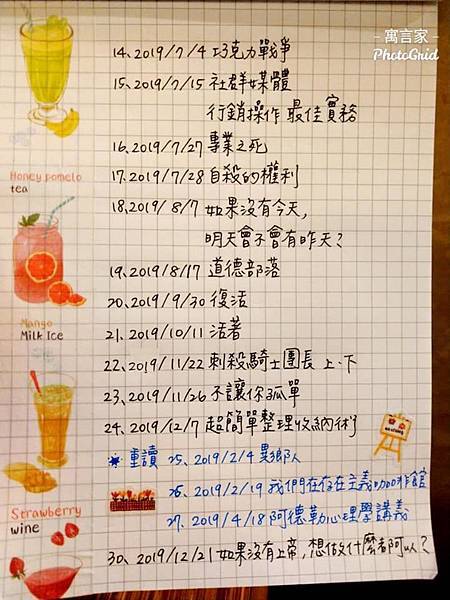 寓言家
PhotoGrid
14、2019/7/4 巧克力戰爭
15、2019/7/15 社群媒體
行銷操作 最佳實務
16、2019/7/27 專業之死
17、2019/7/28 自殺的權利
18、2019/8/7 如果沒有今天，
明天會不會有昨天？
19、2019/8/17 道德部落
20、2019/9/30 復活
21、2019/10/11 活著
22、2019/11/22 刺殺騎士團長 上、下
23、2019/11/26 不讓你孤單
24、2019/12/7 超簡單整理收納術
重讀 25、2019/2/4 異鄉人
26、2019/2/19 我們在存在主義咖啡館
27、2019/4/18 阿德勒心理學講義
30、2019/12/21 如果沒有上帝，想做什麼都可以？
Honey pomelo
tea
Mango
Milk Ice
Strawberry
wine